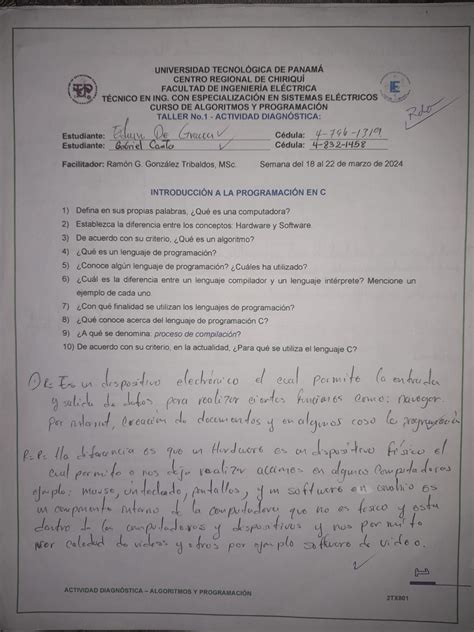 UNIVERSIDAD TECNOLÓGICA DE PANAMÁ
CENTRO REGIONAL DE CHIRIQUÍ
FACULTAD DE INGENIERÍA ELÉCTRICA
TÉCNICO EN ING. CON ESPECIALIZACIÓN EN SISTEMAS ELÉCTRICOS
CURSO DE ALGORITMOS Y PROGRAMACIÓN
TALLER No.1 - ACTIVIDAD DIAGNÓSTICA:
Estudiante: De Gracia Cédula: 4-796-1319
Estudiante: Gabriel Cédula: 4-832-1458
Facilitador: Ramón G. González Tribaldos, MSc. Semana del 18 al 22 de marzo de 2024
INTRODUCCIÓN A LA PROGRAMACIÓN EN C
1) Defina en sus propias palabras, ¿Qué es una computadora?
2) Establezca la diferencia entre los conceptos: Hardware y Software.
3) De acuerdo con su criterio, ¿Qué es un algoritmo?
4) ¿Qué es un lenguaje de programación?
5) ¿Conoce algún lenguaje de programación? ¿Cuáles ha utilizado?
6) ¿Cuál es la diferencia entre un lenguaje compilador y un lenguaje intérprete? Mencione un
ejemplo de cada uno.
7) ¿Con qué finalidad se utilizan los lenguajes de programación?
8) ¿Qué conoce acerca del lenguaje de programación C?
9) ¿A qué se denomina: proceso de compilación?
10) De acuerdo con su criterio, en la actualidad, ¿Para qué se utiliza el lenguaje C?
1) R= Es un dispositivo electrónico el cual permite la entrada
y salida de datos, para realizar ciertas funciones como: navegar
por internet, creación de documentos y en algunos caso la programación
R= la diferencia es que un Hardware es un dispositivo físico el
cual permite o nos deja realizar acciones en algunas computadoras
ejemplo: mouse, teclado, pantallas, y un software en cambio es
un componente interno de la computadora que no es físico y esta
dentro de las computadoras y dispositivos y nos permite
ver calidad de videos y otros por ejemplo software de video.
ACTIVIDAD DIAGNÓSTICA – ALGORITMOS Y PROGRAMACIÓN